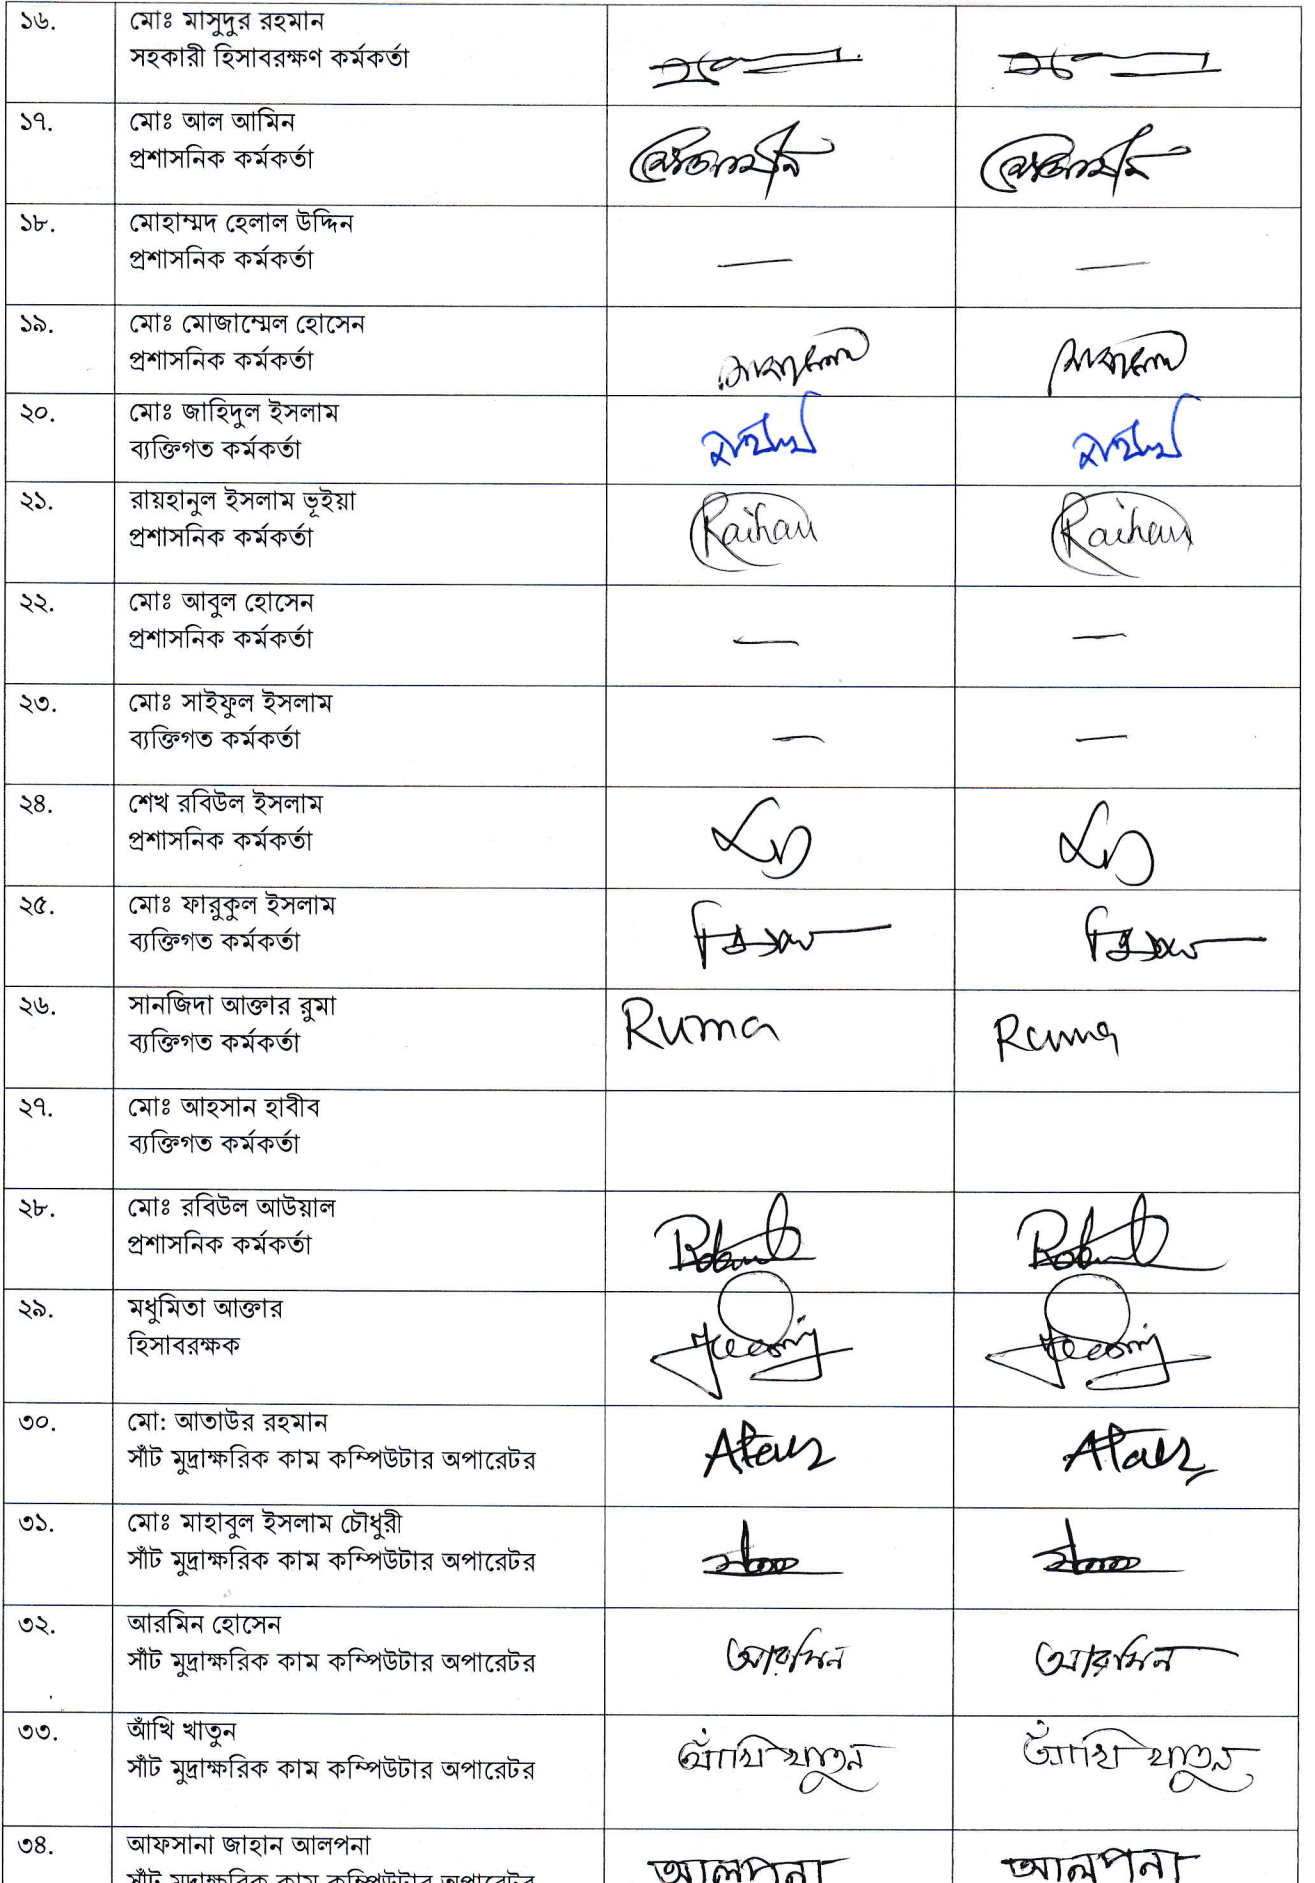 ১৬.
মোঃ মাসুদুর রহমান
সহকারী হিসাবরক্ষণ কর্মকর্তা
১৭.
মোঃ আল আমিন
প্রশাসনিক কর্মকর্তা
১৮.
মোহাম্মদ হেলাল উদ্দিন
প্রশাসনিক কর্মকর্তা
— —
১৯.
মোঃ মোজাম্মেল হোসেন
প্রশাসনিক কর্মকর্তা
২০.
মোঃ জাহিদুল ইসলাম
ব্যক্তিগত কর্মকর্তা
২১.
রায়হানুল ইসলাম ভূইয়া
প্রশাসনিক কর্মকর্তা
Raihan Raihan
২২.
মোঃ আবুল হোসেন
প্রশাসনিক কর্মকর্তা
— —
২৩.
মোঃ সাইফুল ইসলাম
ব্যক্তিগত কর্মকর্তা
— —
২৪.
শেখ রবিউল ইসলাম
প্রশাসনিক কর্মকর্তা
২৫.
মোঃ ফারুকুল ইসলাম
ব্যক্তিগত কর্মকর্তা
২৬.
সানজিদা আক্তার রুমা
ব্যক্তিগত কর্মকর্তা
Ruma Ruma
২৭.
মোঃ আহসান হাবীব
ব্যক্তিগত কর্মকর্তা
২৮.
মোঃ রবিউল আউয়াল
প্রশাসনিক কর্মকর্তা
২৯.
মধুমিতা আক্তার
হিসাবরক্ষক
৩০.
মো: আতাউর রহমান
সাঁট মুদ্রাক্ষরিক কাম কম্পিউটার অপারেটর
৩১.
মোঃ মাহাবুল ইসলাম চৌধুরী
সাঁট মুদ্রাক্ষরিক কাম কম্পিউটার অপারেটর
৩২.
আরমিন হোসেন
সাঁট মুদ্রাক্ষরিক কাম কম্পিউটার অপারেটর
আরমিন আরমিন
৩৩.
আঁখি খাতুন
সাঁট মুদ্রাক্ষরিক কাম কম্পিউটার অপারেটর
আঁখি খাতুন আঁখি খাতুন
৩৪.
আফসানা জাহান আলপনা
সাঁট মুদ্রাক্ষরিক কাম কম্পিউটার অপারেটর
আলপনা আলপনা